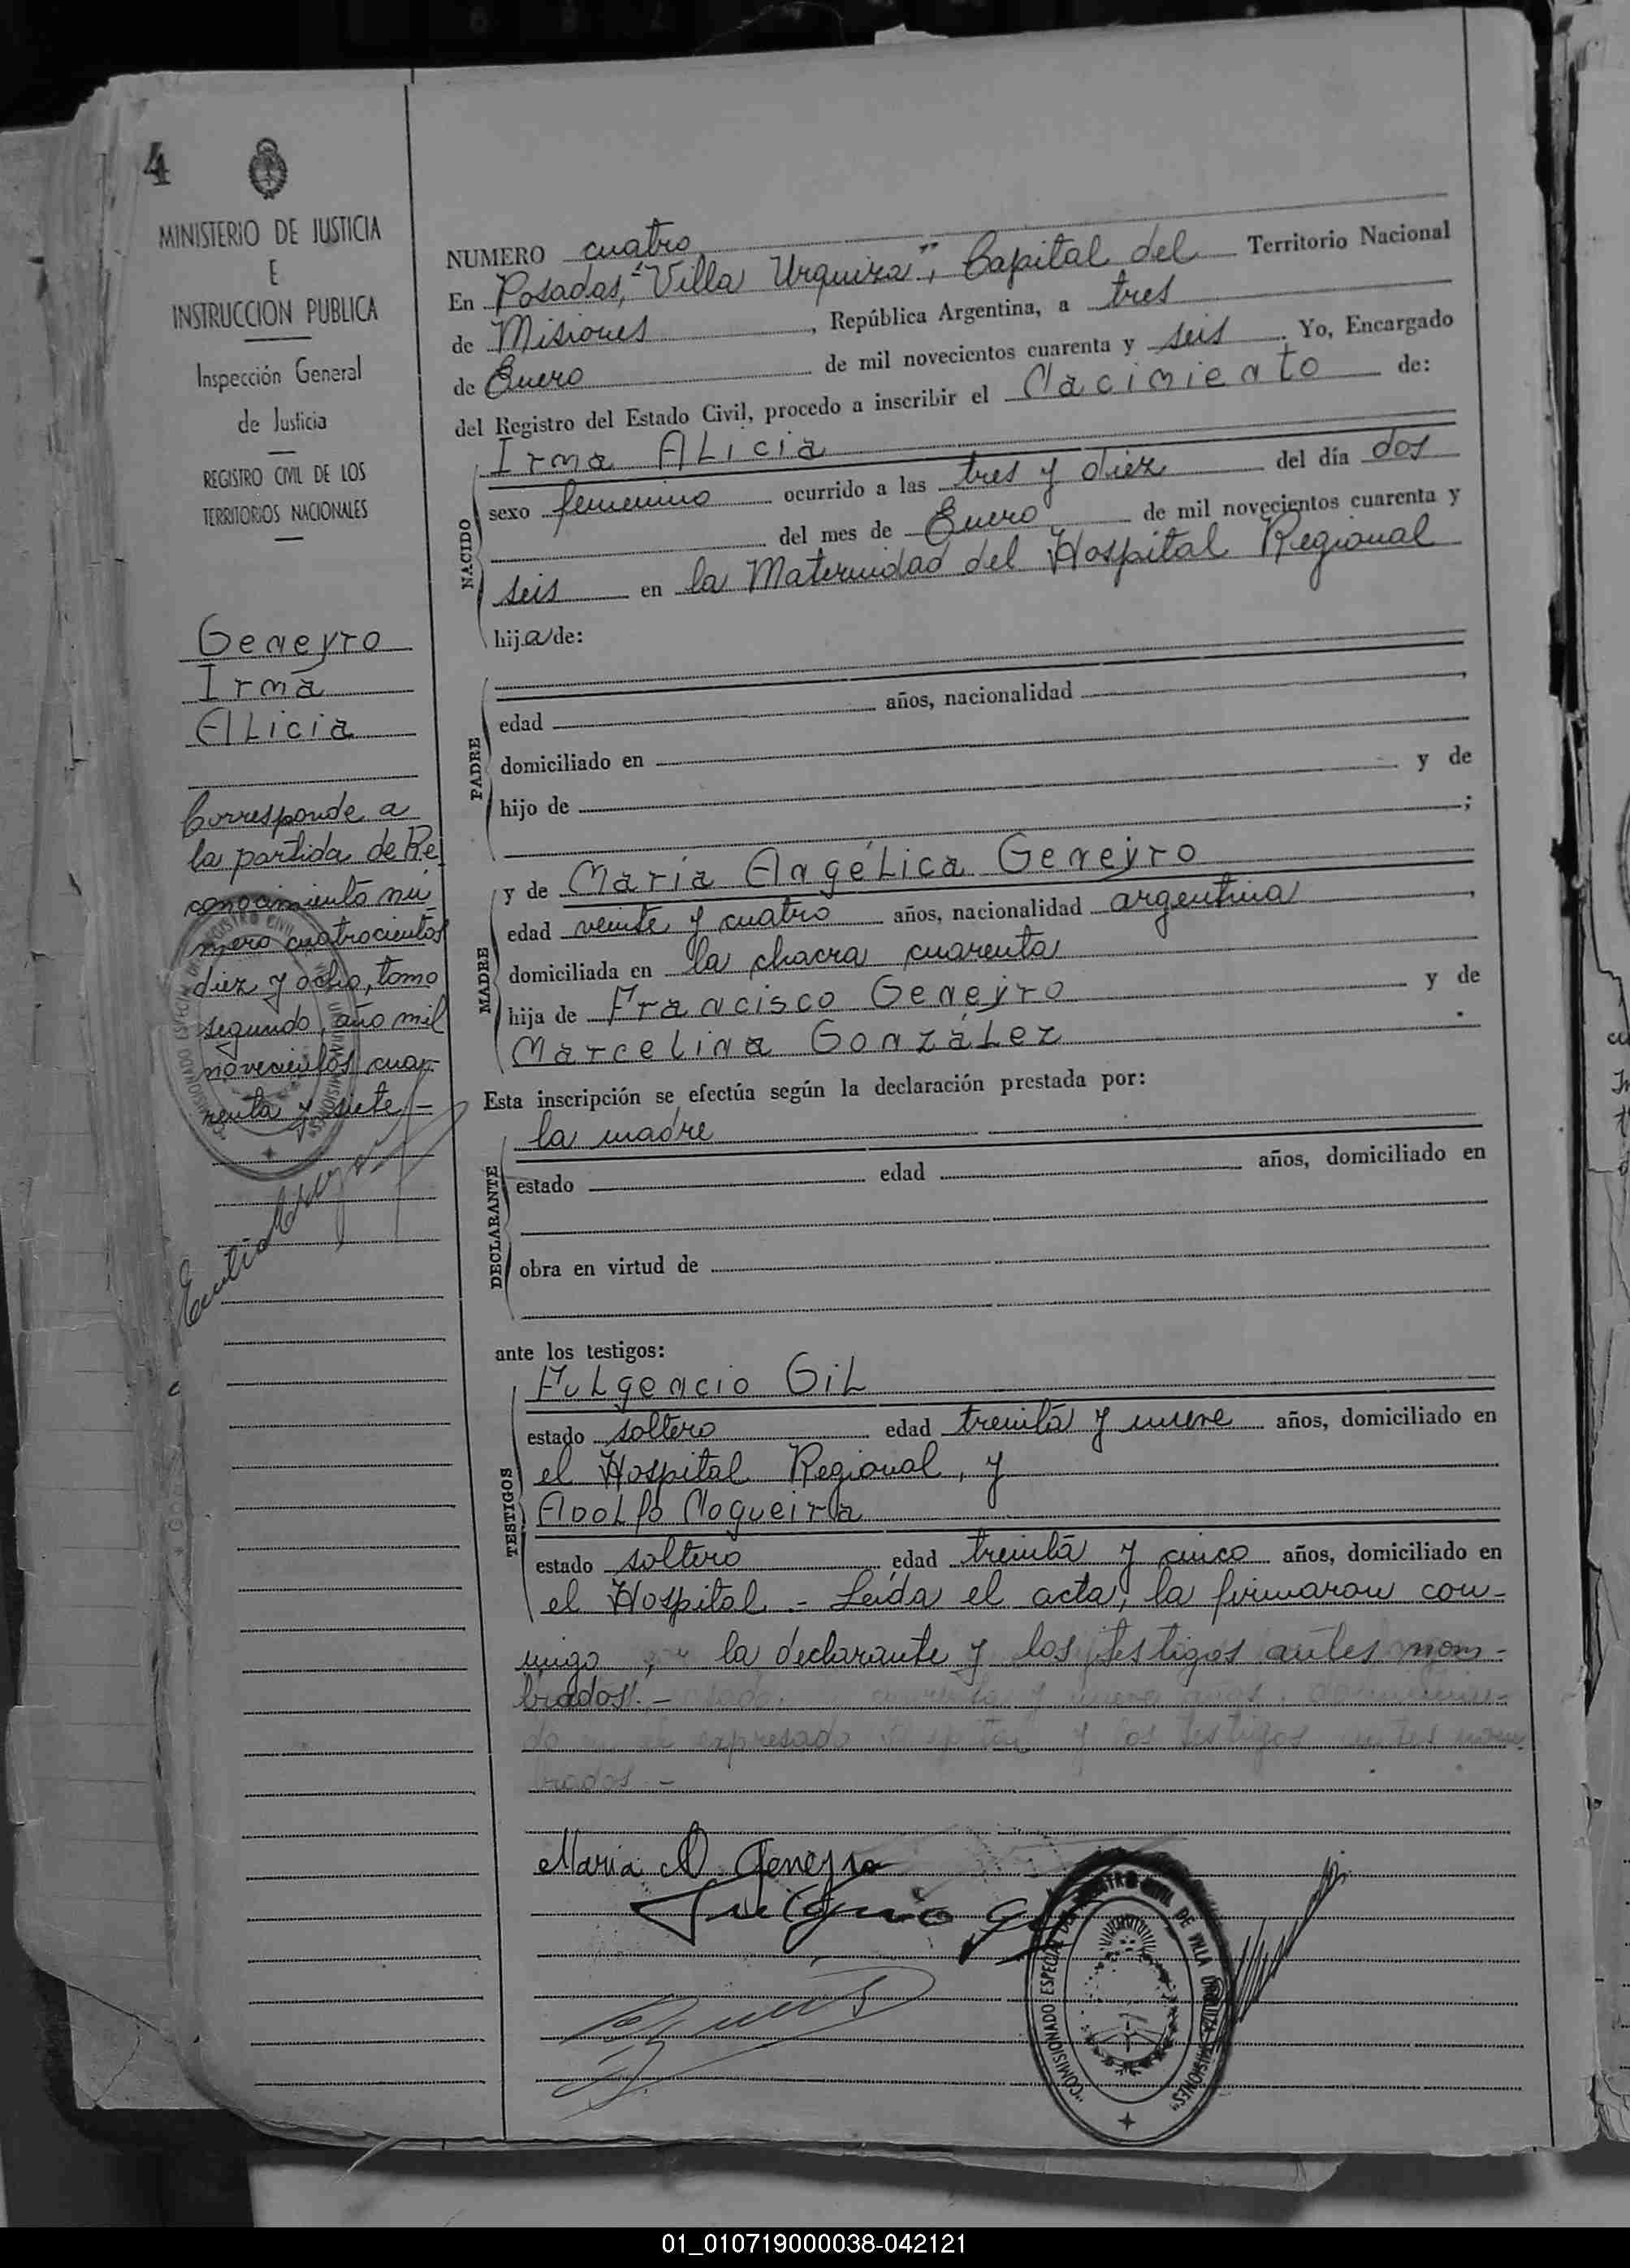 4
MINISTERIO DE JUSTICIA
E
INSTRUCCION PUBLICA
Inspección General
de Justicia
REGISTRO CIVIL DE LOS
TERRITORIOS NACIONALES
Geneyro
Irma
Alicia
Corresponde a
la partida de Re
conocimiento nú
mero cuatrocientos
diez y ocho, tomo
segundo, año mil
novecientos cua-
renta y siete -
NUMERO cuatro
En Posadas, "Villa Urquiza", Capital del Territorio Nacional
de Misiones, República Argentina, a tres
de Enero de mil novecientos cuarenta y seis. Yo, Encargado
del Registro del Estado Civil, procedo a inscribir el Nacimiento de:
NACIDO
Irma Alicia
sexo femenino ocurrido a las tres y diez del día dos
del mes de Enero de mil novecientos cuarenta y
seis en la Maternidad del Hospital Regional
hija de:
PADRE
edad años, nacionalidad ,
domiciliado en
hijo de y de
;
MADRE
y de María Angélica Geneyro
edad veinte y cuatro años, nacionalidad argentina,
domiciliada en la chacra cuarenta
hija de Francisco Geneyro y de
Marcelina González.
Esta inscripción se efectúa según la declaración prestada por:
DECLARANTE
la madre
estado edad años, domiciliado en
obra en virtud de
ante los testigos:
TESTIGOS
Fulgencio Gil
estado soltero edad treinta y nueve años, domiciliado en
el Hospital Regional, y
Adolfo Nogueira
estado soltero edad treinta y cinco años, domiciliado en
el Hospital. - Leída el acta, la firmaron con-
migo, la declarante y los testigos antes nom-
brados. -
expresado y los testigos antes nom
brados -
Maria A Geneyro
"COMISIONADO ESPECIAL DEL REGISTRO CIVIL DE VILLA URQUIZA MISIONES"
01_010719000038-042121